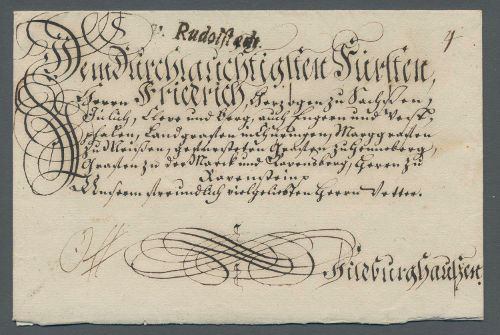 v. Rudolstadt.
4
Dem Durchlauchtigsten Fürsten,
Herrn Friedrich, Herzogen zu Sachsen,
Jülich, Cleve und Berg, auch Engern und West-
phalen, Landgrafen in Thüringen, Marggrafen
zu Meißen, Gefürsteten Grafen zu Henneberg,
Grafen zu der Marck und Ravensberg, Herrn zu
Ravenstein
Unserm freundlich vielgeliebten Herrn Vetter.
Hildburghausen.